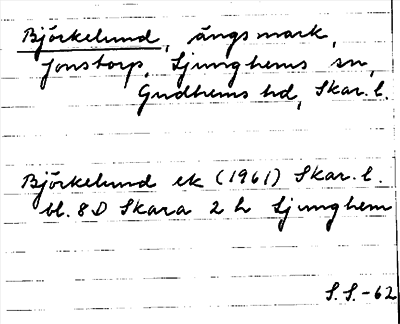 Björkelund, ängsmark,
Jonstorp, Ljunghems sn,
Gudhems hd, Skar. l.
Björkelund ek (1961) Skar. l.
bl. 8D Skara 2h Ljunghem
S.S.-62